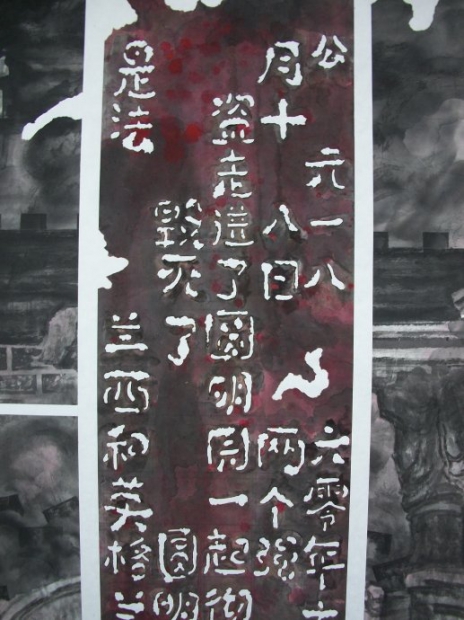 公元一八六零年十
月十八日两个强
盗走进了圆明园一起彻
毁灭了圆明
是法兰西和英格兰